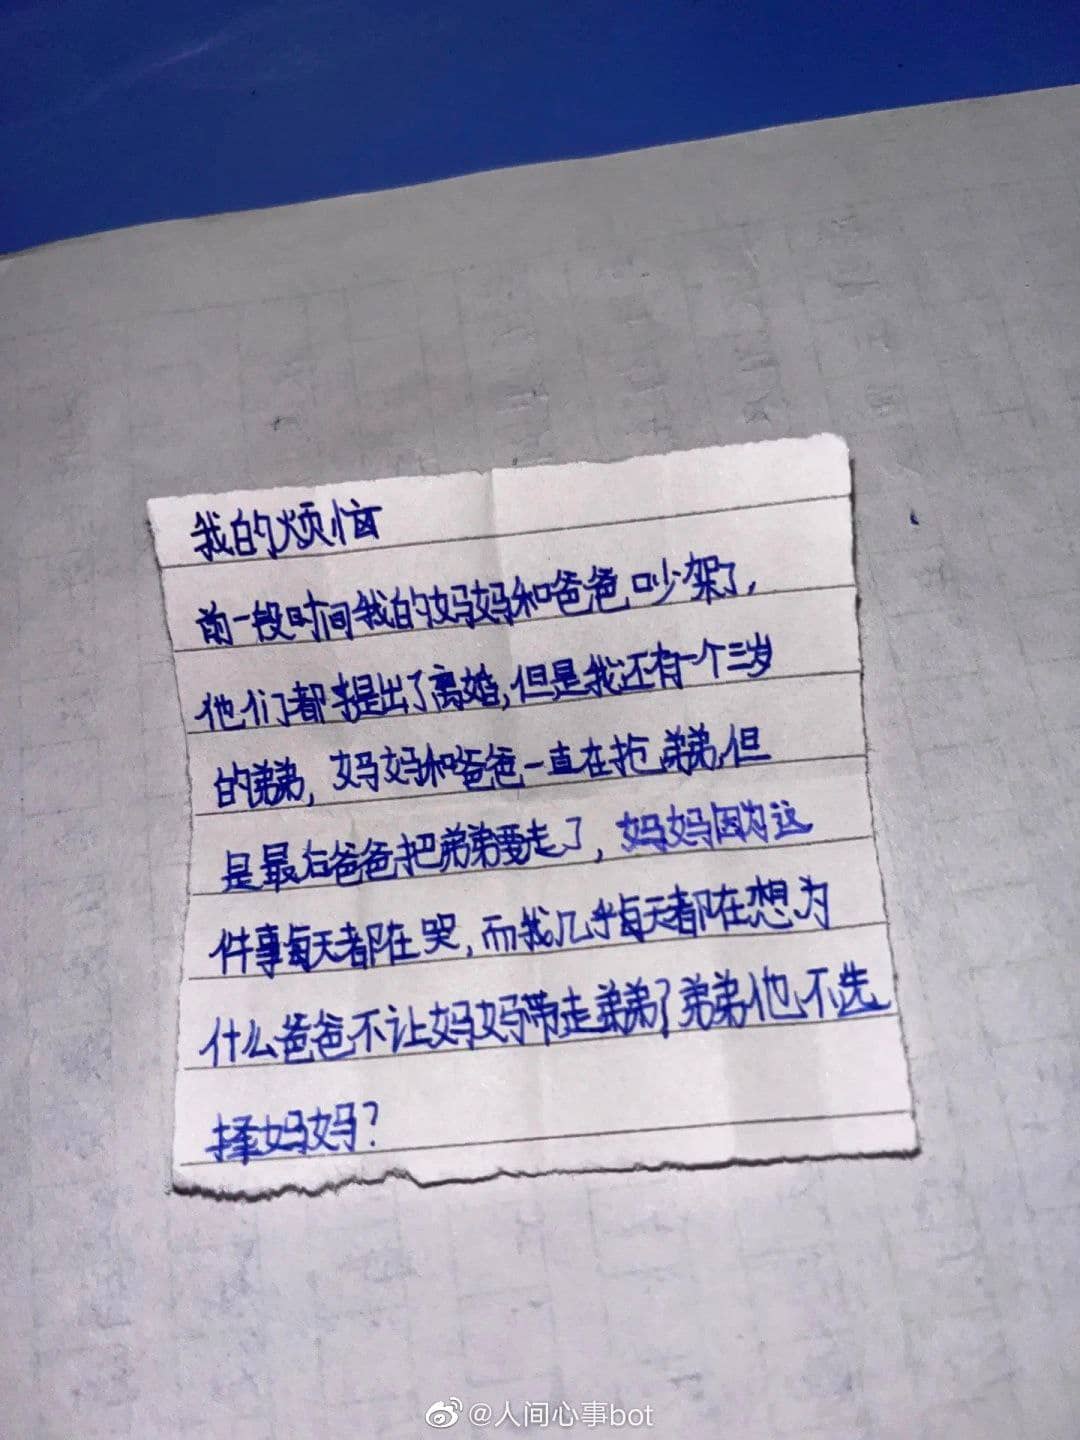 我的烦恼
前一段时间我的妈妈和爸爸吵架了，
他们都提出了离婚，但是我还有一个三岁
的弟弟，妈妈和爸爸一直在抢弟弟，但
是最后爸爸把弟弟要走了，妈妈因为这
件事每天都在哭，而我几乎每天都在想为
什么爸爸不让妈妈带走弟弟了弟弟他不选
择妈妈？
@人间心事bot